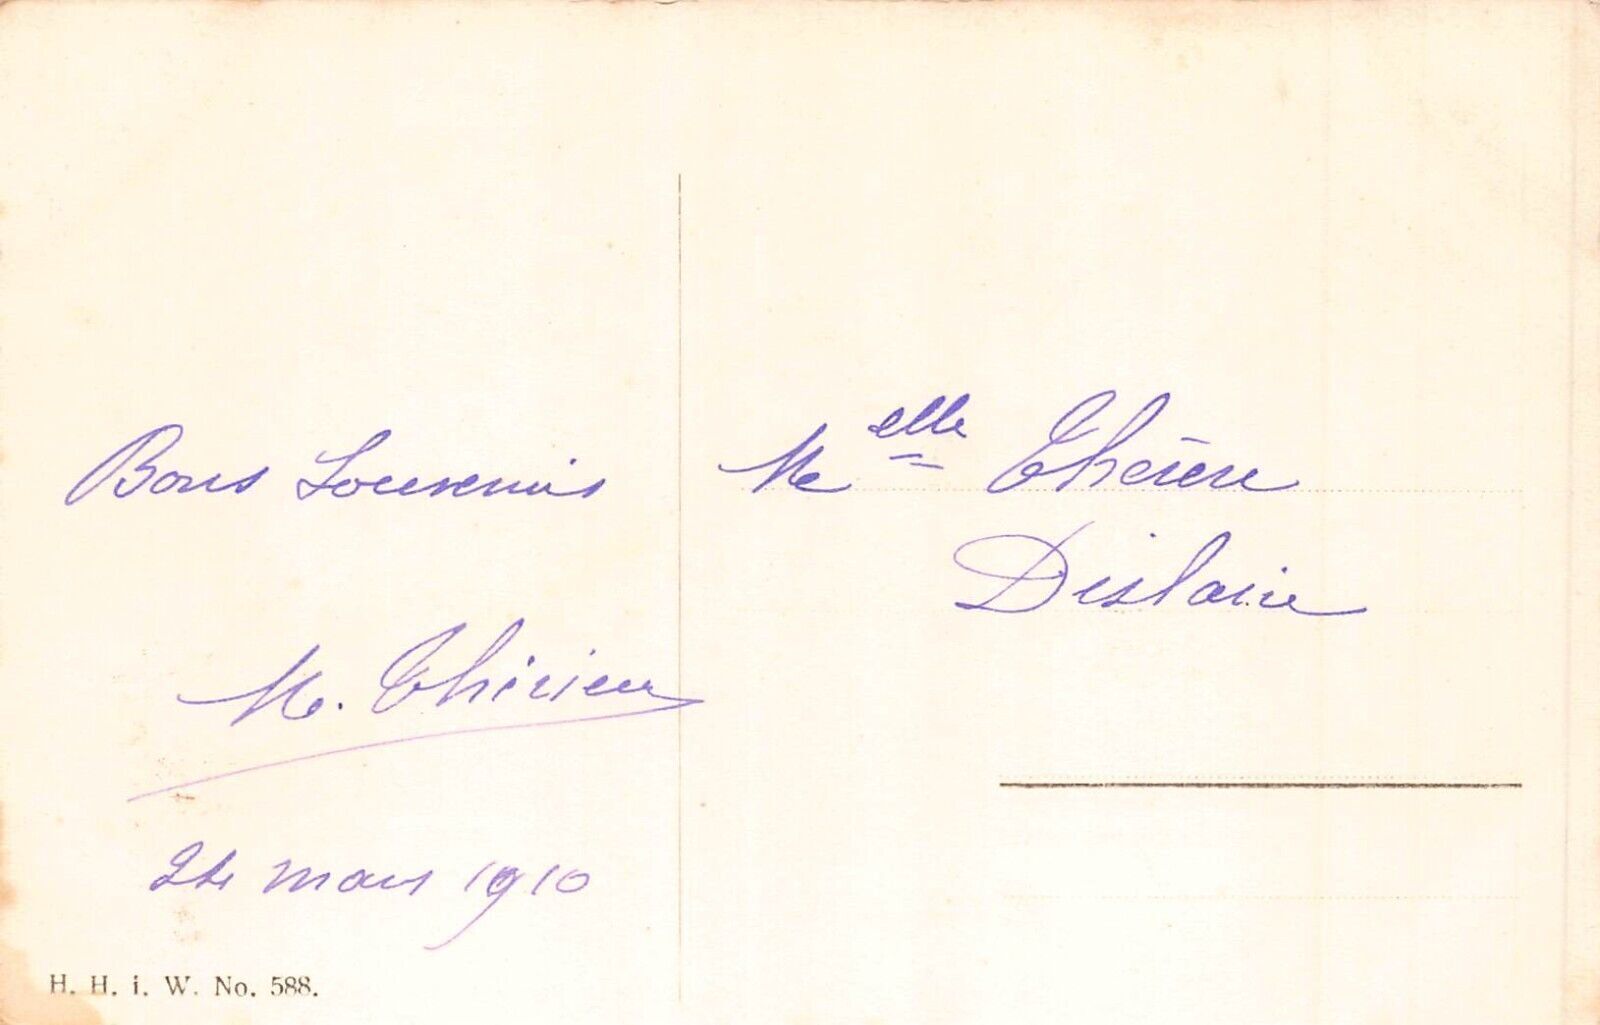 Bons Souvenirs
M. Thirieu
24 mars 1910
H. H. i. W. No. 588.
Melle Thérèse
Deslaire